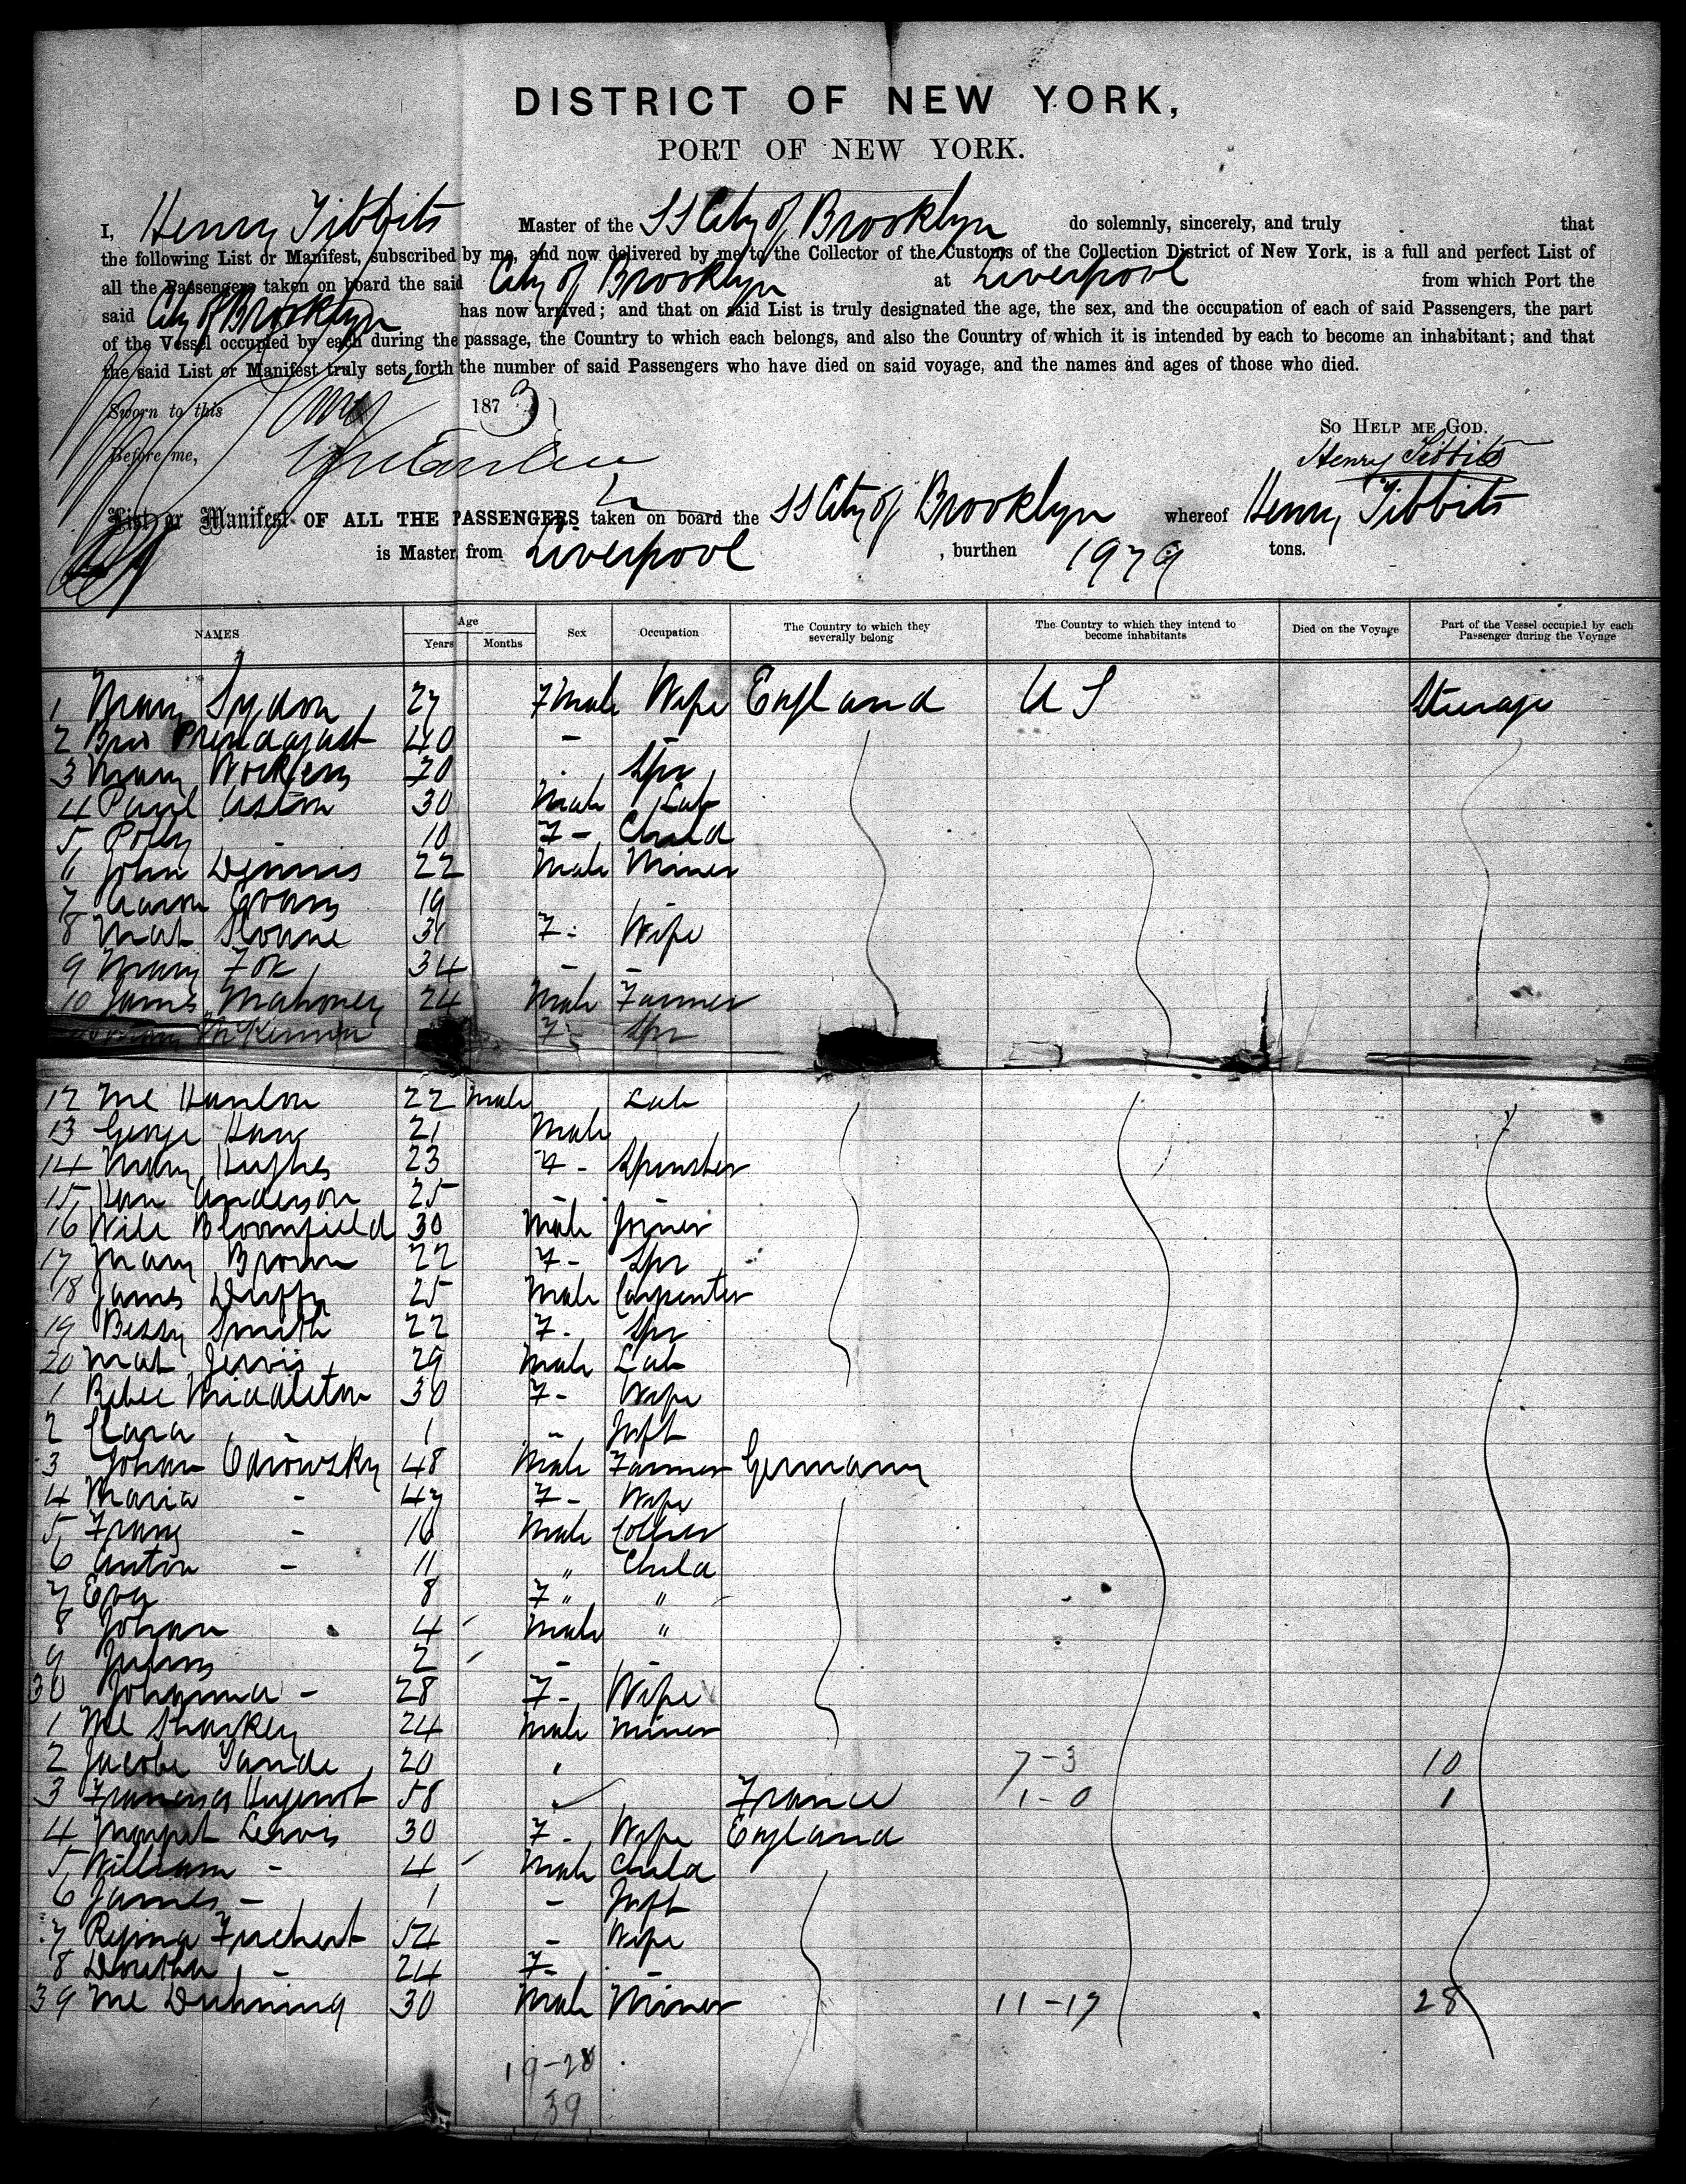 DISTRICT OF NEW YORK,
PORT OF NEW YORK.
I, Henry Tibbits Master of the SS City of Brooklyn do solemnly, sincerely, and truly that
the following List or Manifest, subscribed by me, and now delivered by me to the Collector of the Customs of the Collection District of New York, is a full and perfect List of
all the Passengers taken on board the said City of Brooklyn at Liverpool from which Port the
said City of Brooklyn has now arrived; and that on said List is truly designated the age, the sex, and the occupation of each of said Passengers, the part
of the Vessel occupied by each during the passage, the Country to which each belongs, and also the Country of which it is intended by each to become an inhabitant; and that
the said List or Manifest truly sets forth the number of said Passengers who have died on said voyage, and the names and ages of those who died.
Sworn to this 1873
So Help me God.
Before me,
Henry Tibbits
List or Manifest OF ALL THE PASSENGERS taken on board the SS City of Brooklyn whereof Henry Tibbits
is Master, from Liverpool, burthen 1979 tons.
NAMES Age Years Months Sex Occupation The Country to which they severally belong The Country to which they intend to become inhabitants Died on the Voyage Part of the Vessel occupied by each Passenger during the Voyage
1 Mary 27 Fmale Wife England U S Steerage
2 Prendagast 40 - -
3 Mary 20 Spr
4 Paul Aston 30 Male Lab
5 Polly 10 F - Child
6 John Dennis 22 Male Miner
7 Aaron Evans 19
8 Mat Sloane 31 F - Wife
9 Mary Fox 34 - -
10 James Mahoney 24 Male Farmer
McKinnon F Spr
12 Ml Hanlon 22 Male Lab
13 George 21 Male
14 Mary Hughes 23 F - Spinster
15 Anderson 25 - -
16 Will Bloomfield 30 Male Joiner
17 Mary Brown 22 F - Spr
18 James Duffy 25 Male Carpenter
19 Bessy Smith 22 F - Spr
20 Mat Jervis 29 Male Lab
1 Rebec Middleton 30 F - Wife
2 Clara 1 - Inft
3 Johan 48 Male Farmer Germany
4 Maria - 47 F - Wife
5 Franz - 16 Male Collier
6 Anton - 11 " Child
7 Eva 8 F " "
8 Johan 4 Male "
9 Julius 2 - -
30 Johanna - 28 F - Wife
1 Ml Sharkey 24 Male Miner
2 Jacobe 20 " 7-3 10
3 58 France 1-0 1
4 Margret Lewis 30 F - Wife England
5 William - 4 Male Child
6 James - 1 - Inft
7 Regina 54 - Wife
8 - 24 F - -
39 Ml Dunning 30 Male Miner 11-17 28
19-20
39